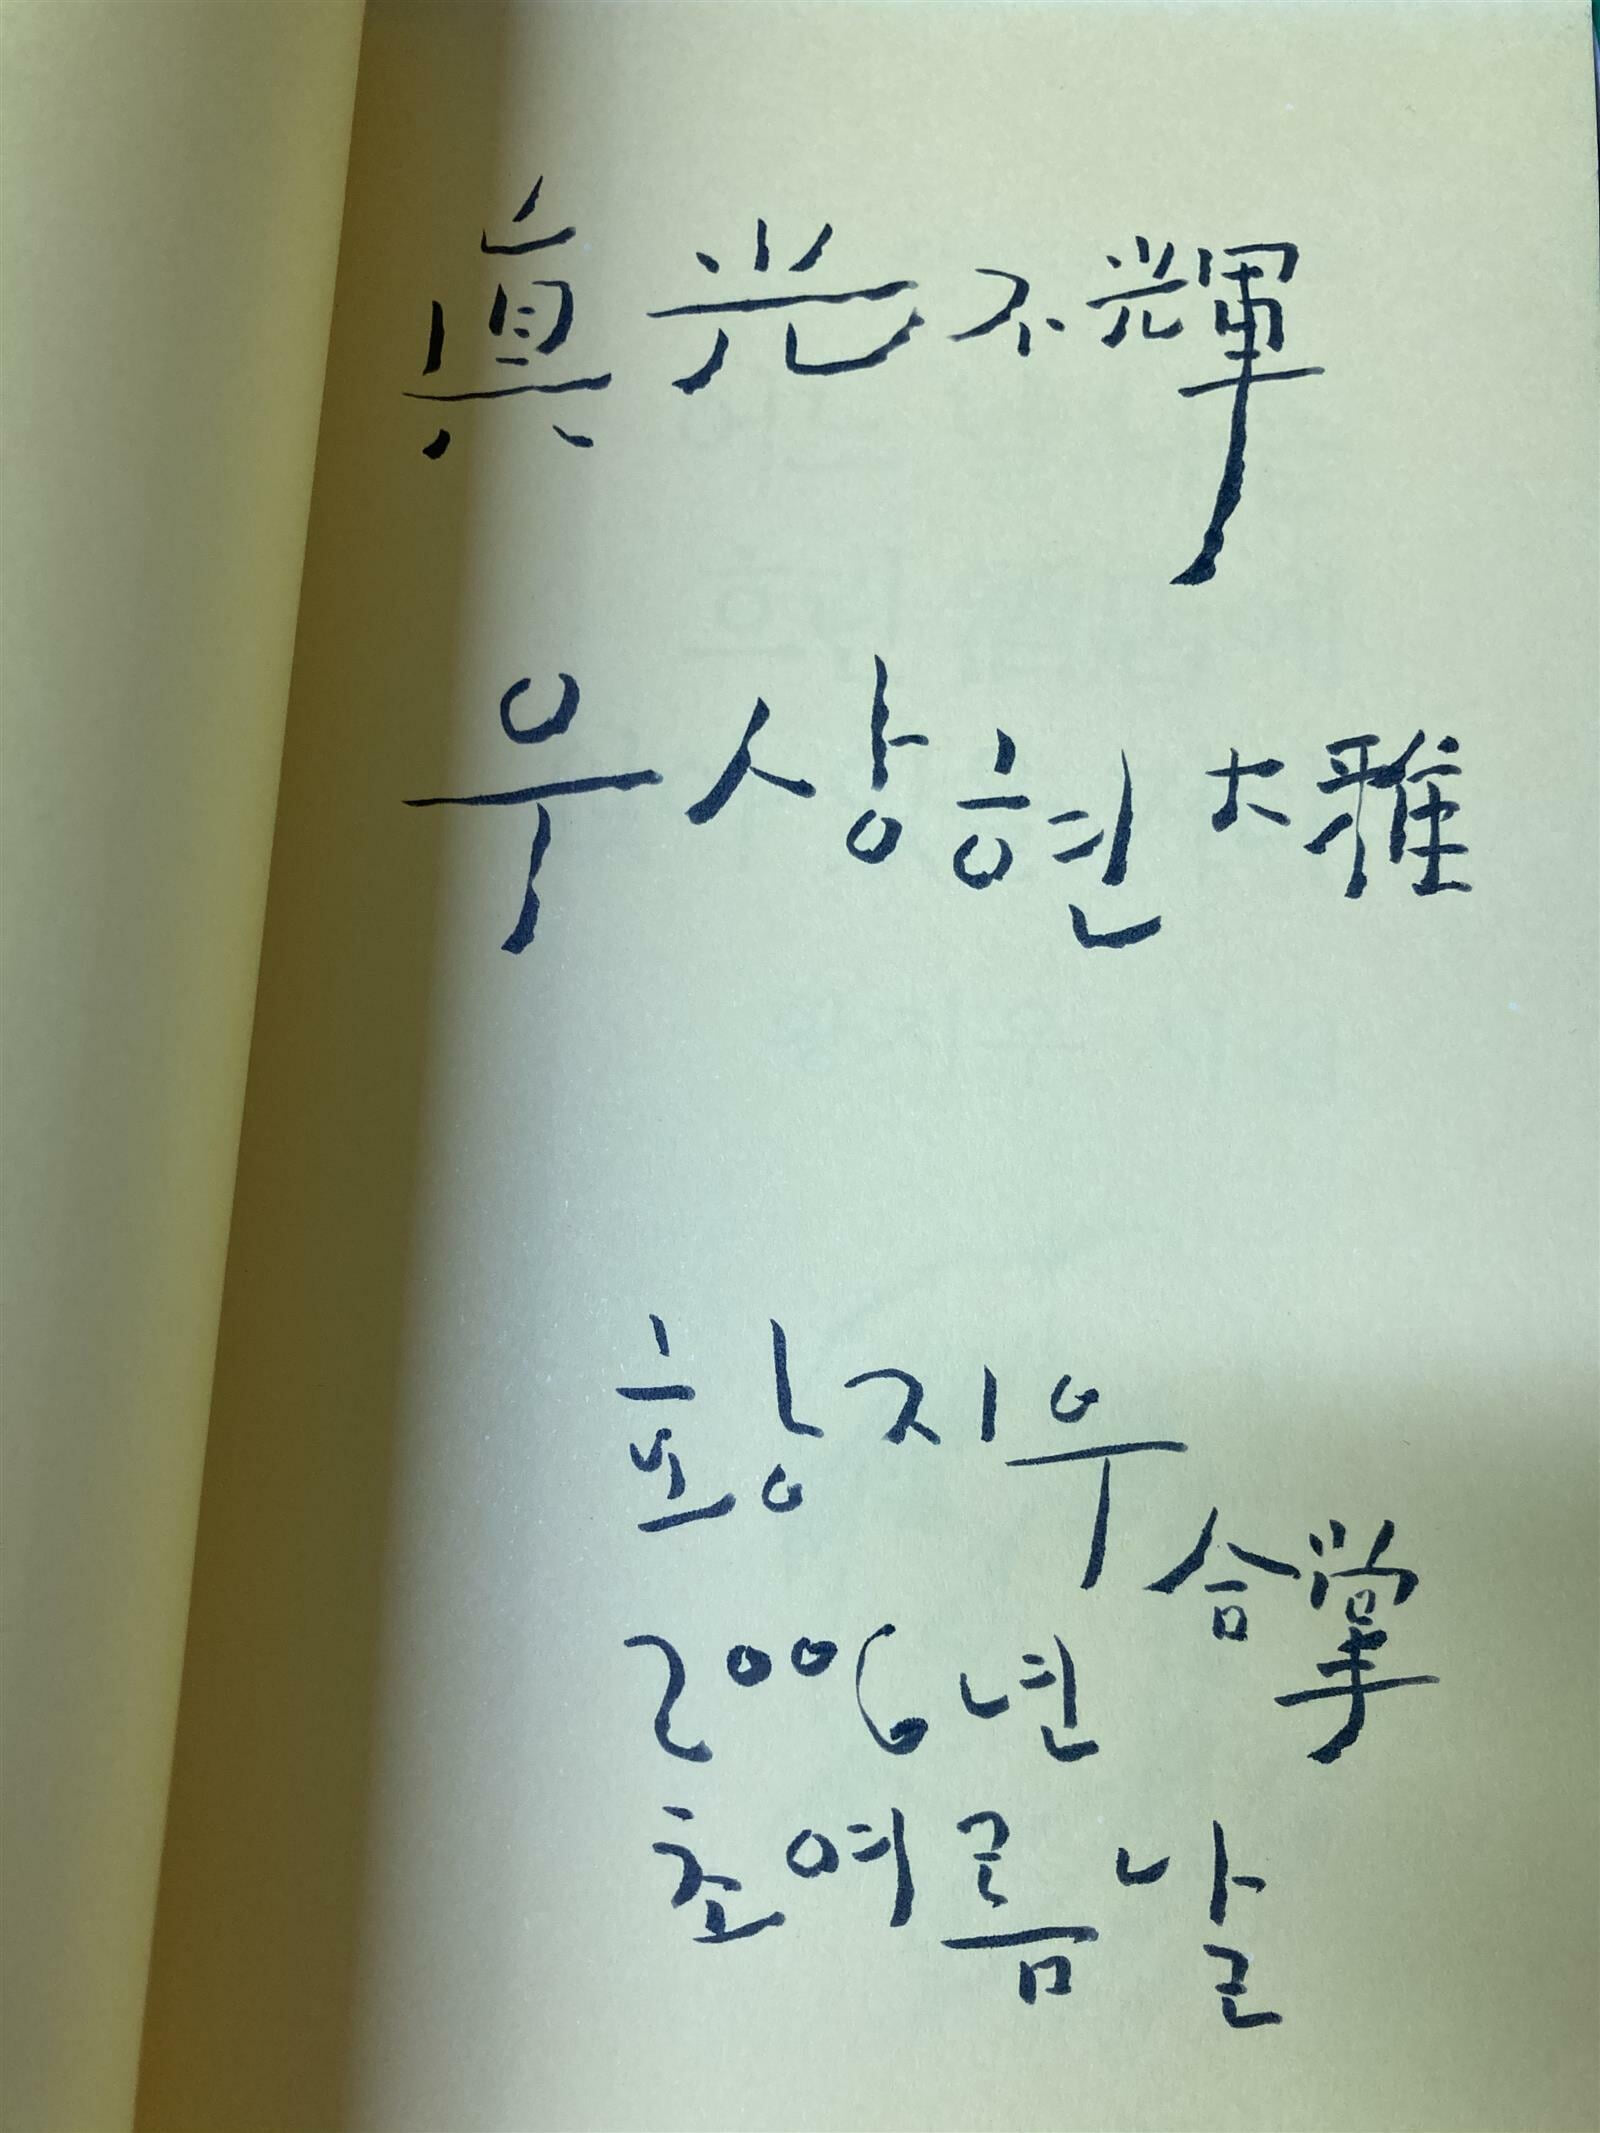 眞光不輝
우상현 大雅
황지우 合掌
2006년
초여름날